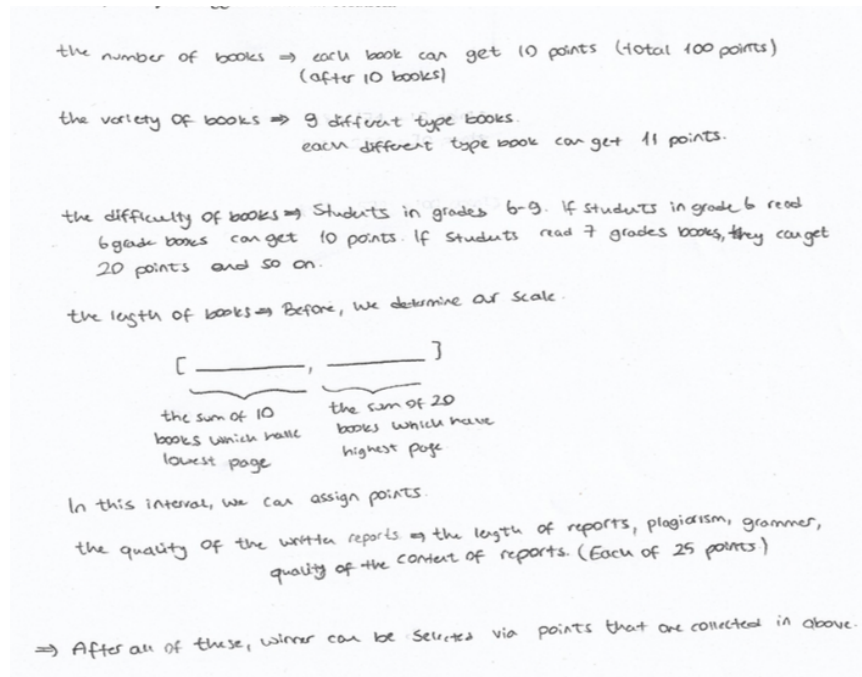 the number of books ⇒ each book can get 10 points (total 100 points)
(after 10 books)
the variety of books ⇒ 9 different type books.
each different type book can get 11 points.
the difficulty of books ⇒ Students in grades 6-9. If students in grade 6 read
6 grade books can get 10 points. If students read 7 grades books, they can get
20 points and so on.
the length of books ⇒ Before, we determine our scale.
[ ______ , ______ ]
the sum of 10
books which have
lowest page
the sum of 20
books which have
highest page
In this interval, we can assign points.
the quality of the written reports ⇒ the length of reports, plagiarism, grammer,
quality of the content of reports. (Each of 25 points)
⇒ After all of these, winner can be selected via points that are collected in above.